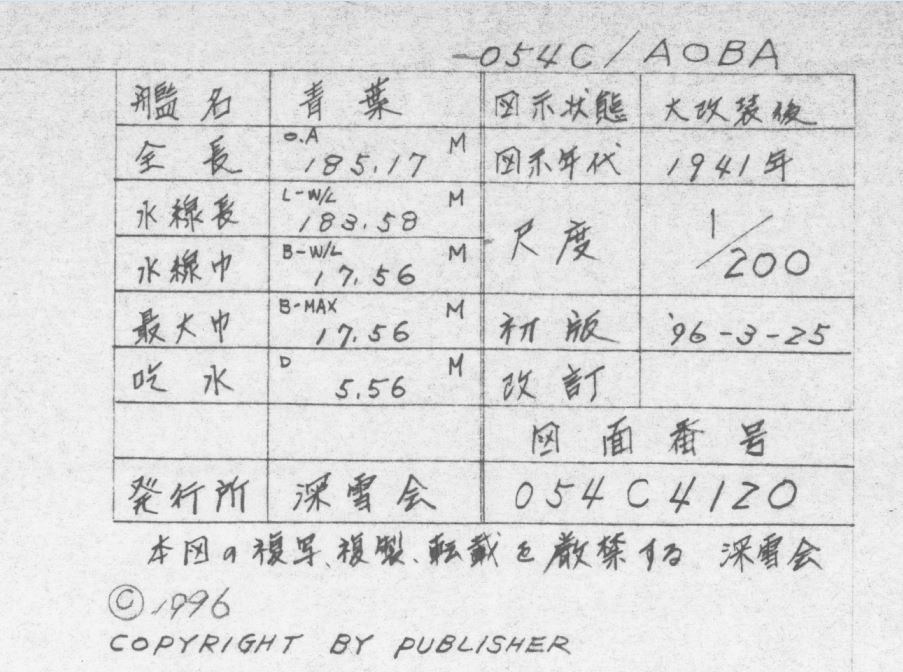 -054C/AOBA
艦名 青葉 図示状態 大改装後
全長 O.A 185.17 M 図示年代 1941年
水線長 L-W/L 183.58 M 尺度 1/200
水線巾 B-W/L 17.56 M
最大巾 B-MAX 17.56 M 初版 '96-3-25
吃水 D 5.56 M 改訂
図面番号
発行所 深雪会 054C4120
本図の複写、複製、転載を厳禁する 深雪会
©1996
COPYRIGHT BY PUBLISHER